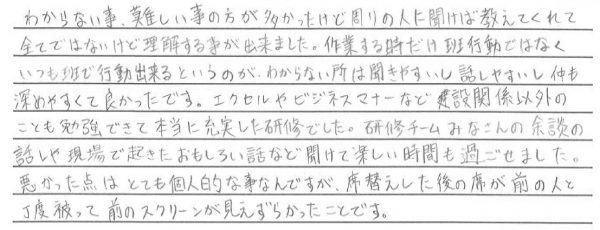 わからない事、難しい事の方が多かったけど周りの人に聞けば教えてくれて
全てではないけど理解する事が出来ました。作業する時だけ班行動ではなく
いつも班で行動出来るというのが、わからない所は聞きやすいし話しやすいし仲も
深めやすくて良かったです。エクセルやビジネスマナーなど建設関係以外の
ことも勉強できて本当に充実した研修でした。研修チームみなさんの余談の
話しや現場で起きたおもしろい話など聞けて楽しい時間も過ごせました。
悪かった点はとても個人的な事なんですが、席替えした後の席が前の人と
丁度被って前のスクリーンが見えずらかったことです。